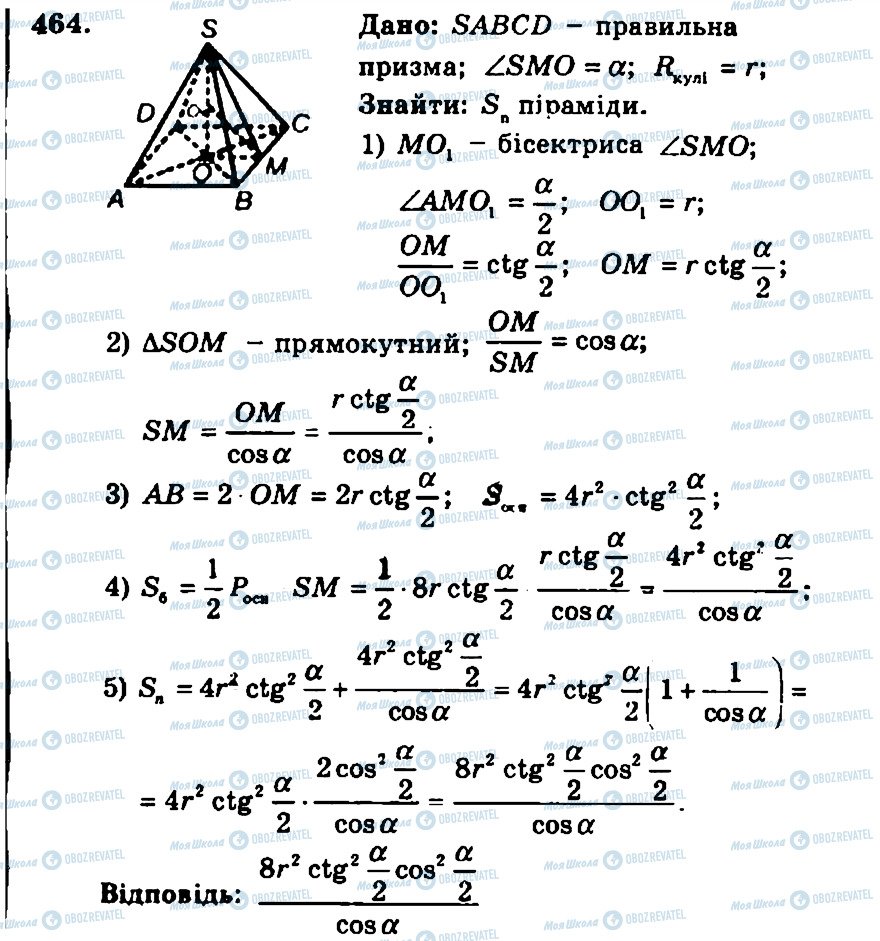 464.
S
D
O₁
C
M
O
A
B
Дано: SABCD – правильна
призма; ∠SMO = α; R_кулі = r;
Знайти: S_п піраміди.
1) MO₁ – бісектриса ∠SMO;
∠AMO₁ = α/2; OO₁ = r;
OM/OO₁ = ctg α/2; OM = r ctg α/2;
2) ΔSOM – прямокутний; OM/SM = cos α;
SM = OM/cos α = (r ctg α/2)/cos α;
3) AB = 2 · OM = 2r ctg α/2; S_осн = 4r² · ctg² α/2;
4) S_б = 1/2 P_осн SM = 1/2 · 8r ctg α/2 (r ctg α/2)/cos α = (4r² ctg² α/2)/cos α;
5) S_п = 4r² ctg² α/2 + (4r² ctg² α/2)/cos α = 4r² ctg² α/2 (1 + 1/cos α) =
= 4r² ctg² α/2 · (2cos² α/2)/cos α = (8r² ctg² α/2 cos² α/2)/cos α.
Відповідь: (8r² ctg² α/2 cos² α/2)/cos α
МояШкола OBOZREVATEL